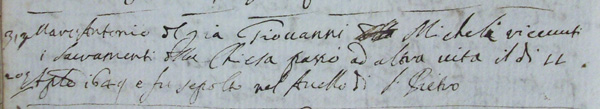 Marc'Antonio del già Giovanni Micheli ricevuti
i sacramenti della Chiesa passò ad altra vita il dì 11
1649 e fu sepolto nel Avello di S. Pietro